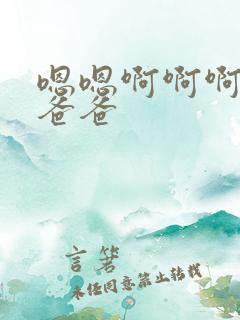 嗯嗯啊啊啊
爸爸
言箬
未经同意禁止转载